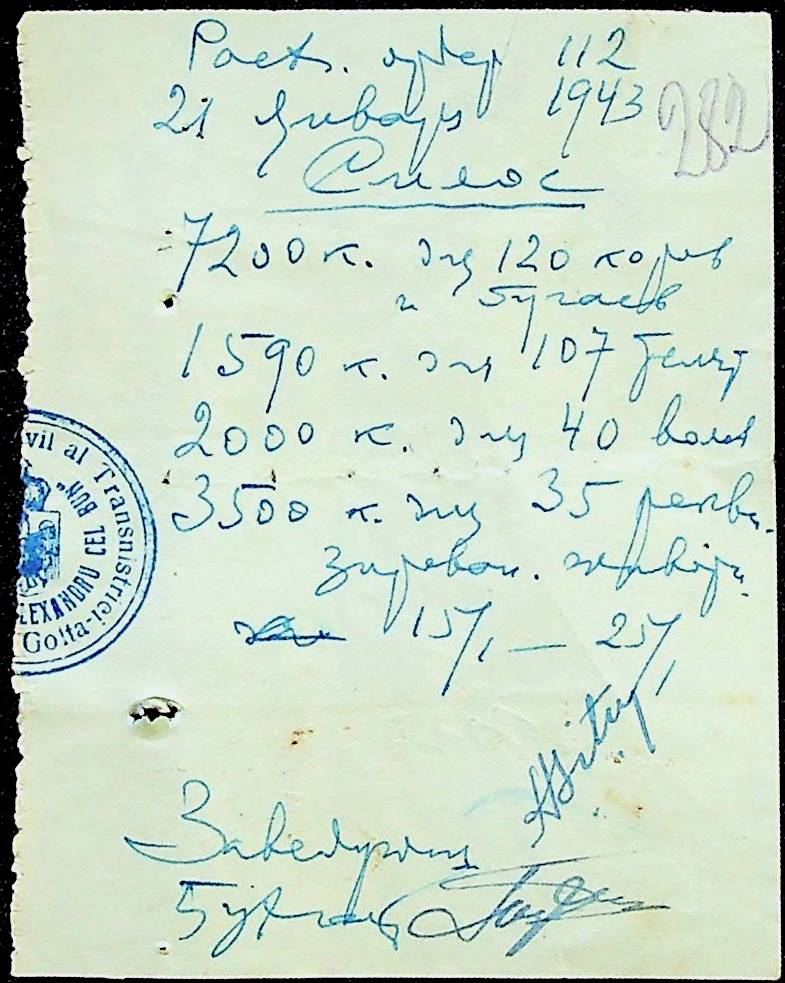 Расх. ордер 112
21 Января 1943
282
Силос
7200 к. для 120 коров
и бугаев
1590 к. для 107 телят
2000 к. для 40 волов
3500 к. для 35 рекви-
зирован.
15/1 — 25/1
Заведующ
Бухгал
vil al Transnistriei
ALEXANDRU CEL BUN"
Golta